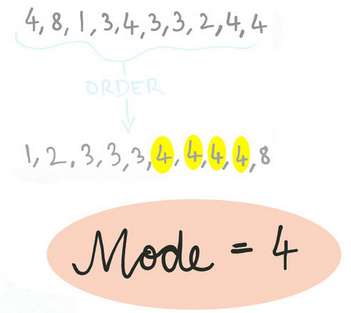 4,8,1,3,4,3,3,2,4,4
ORDER
1,2,3,3,3,4,4,4,4,8
Mode = 4